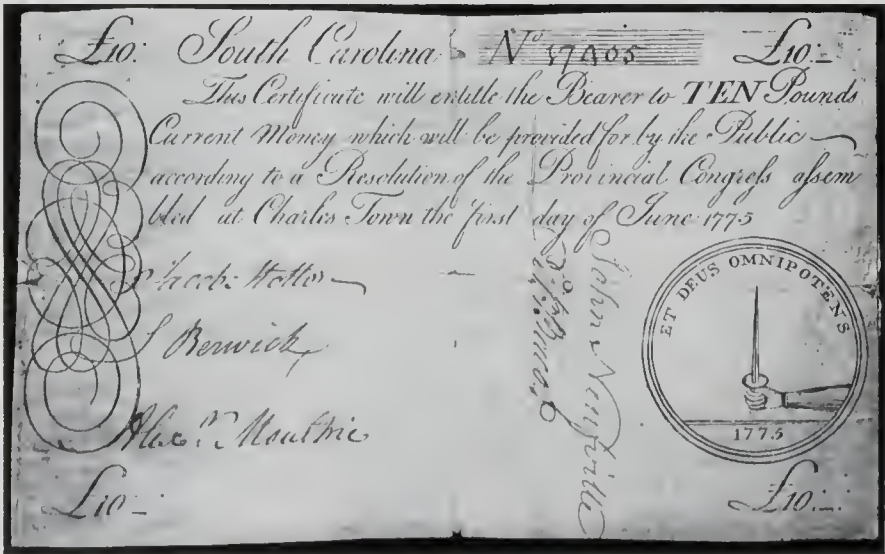 £10: South Carolina Nº 17905 £10:
This Certificate will entitle the Bearer to TEN Pounds
Current Money which will be provided for by the Public
according to a Resolution of the Provincial Congress assem
bled at Charles Town the first day of June 1775
Jacob
Berwick
Alexr. Moultrie
John Neufville
ET DEUS OMNIPOTENS
1775
£10 £10: